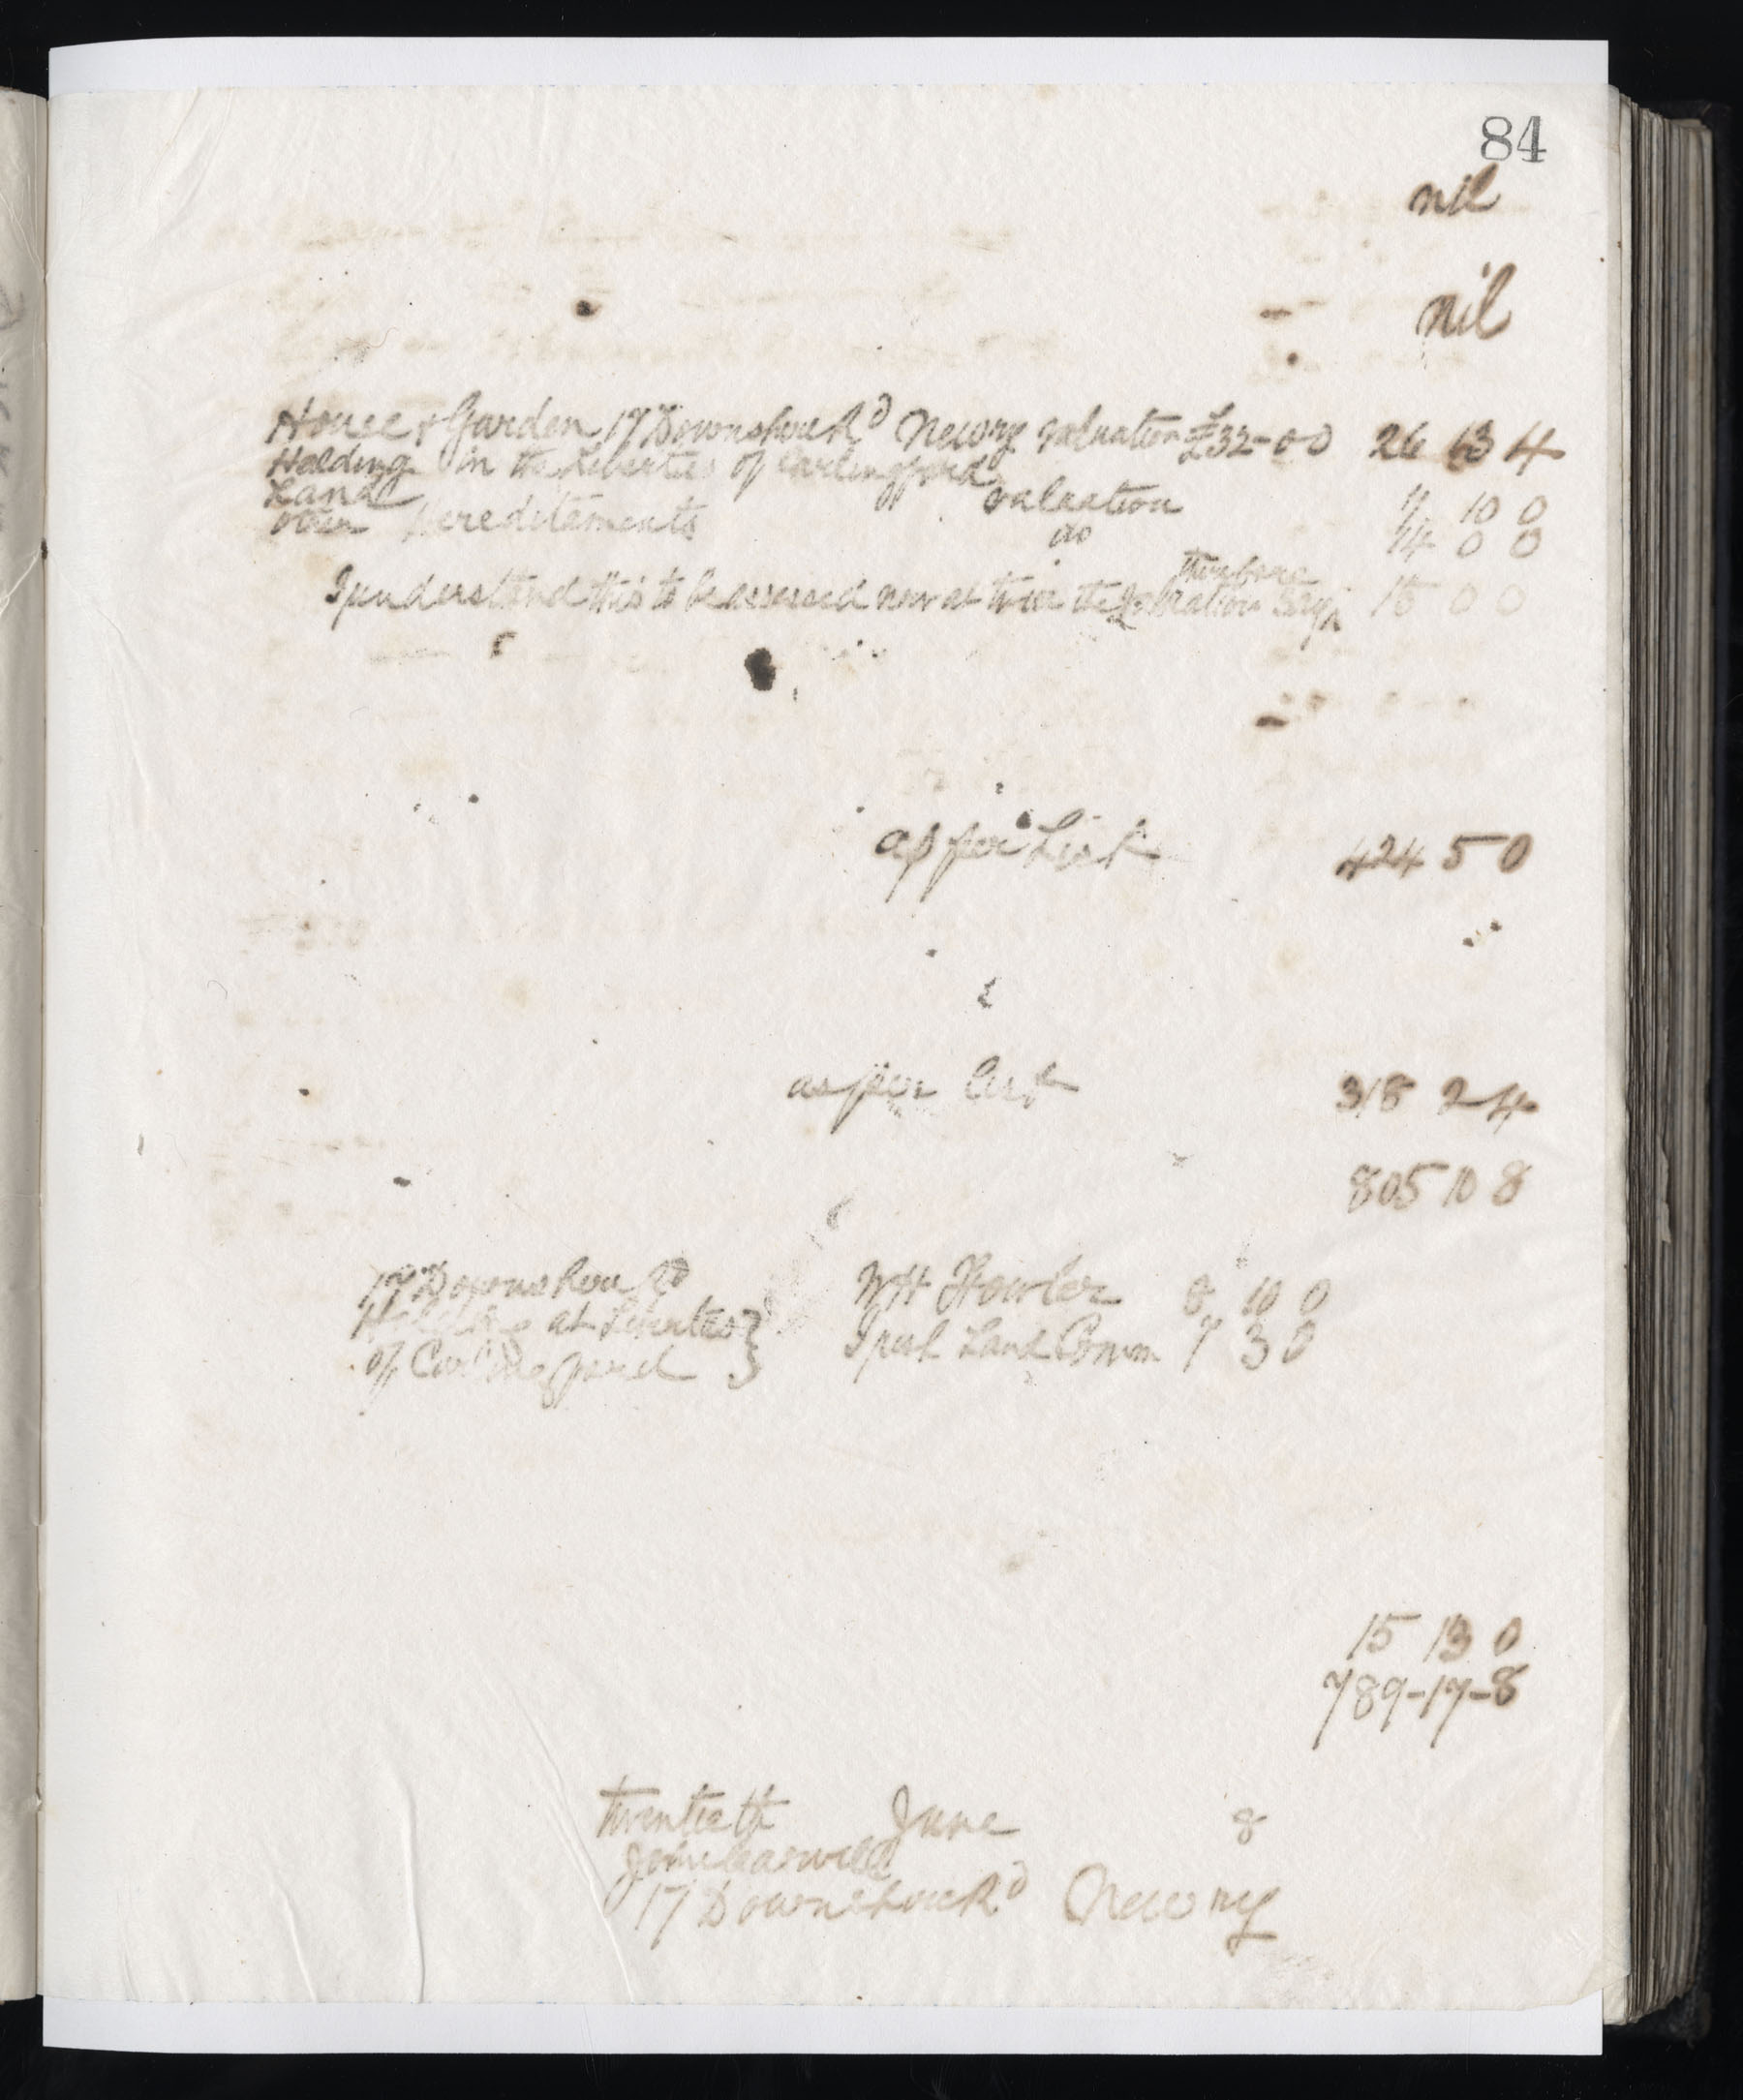 84
nil
nil
House & Garden 17 Downshire Rd Newry valuation £32-0-0 26 13 4
Holding in the Liberties of Carlingford
Land valuation 11 10 0
other hereditaments do 14 0 0
therefore
I understand this to be assessed now at twice the valuation say 15 0 0
as per List 424 5 0
as per list 318 2 4
805 10 8
17 Downshire Rd WH Fowler 8 10 0
Holding at Liberties } Irish Land Comm 7 3 0
of Carlingford
15 13 0
789-17-8
twentieth June 8
John
17 Downshire Rd Newry